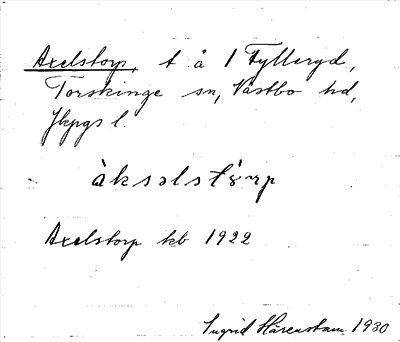 Axelstorp, t å 1 Fylleryd,
Torskinge sn, Västbo hd,
Jkpgs l.
àksəlstɷ̀rp
Axelstorp kb 1922
Ingrid Härenstam 1930